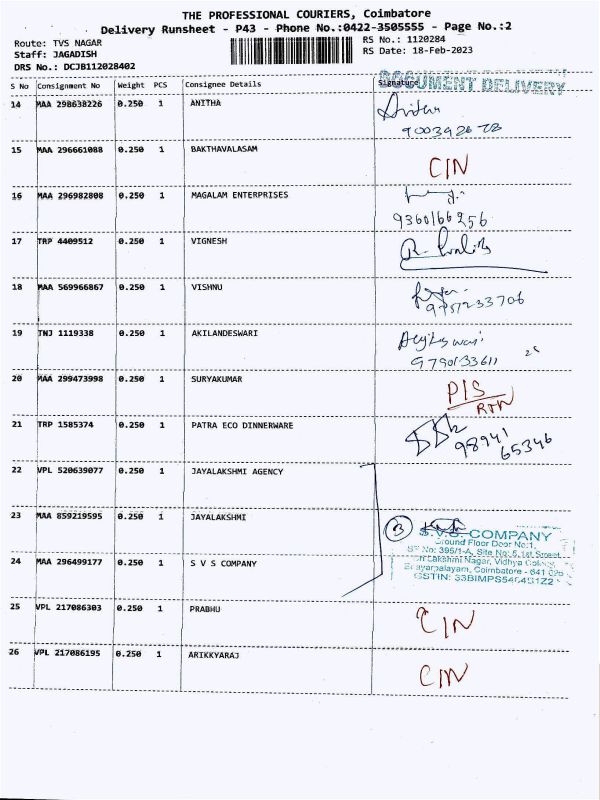 THE PROFESSIONAL COURIERS, Coimbatore
Delivery Runsheet - P43 - Phone No.:0422-3505555 - Page No.:2
Route: TVS NAGAR
RS No.: 1120284
Staff: JAGADISH
RS Date: 18-Feb-2023
DRS No.: DCJB112028402
DOCUMENT DELIVERY
S No Consignment No Weight PCS Consignee Details Signature
14 MAA 298638226 0.250 1 ANITHA
15 MAA 296661088 0.250 1 BAKTHAVALASAM CIN
16 MAA 296982808 0.250 1 MAGALAM ENTERPRISES
9360166256
17 TRP 4409512 0.250 1 VIGNESH
18 MAA 569966867 0.250 1 VISHNU
19 TNJ 1119338 0.250 1 AKILANDESWARI
9790133611
20 MAA 299473998 0.250 1 SURYAKUMAR P/S
RTN
21 TRP 1585374 0.250 1 PATRA ECO DINNERWARE
98941
65346
22 VPL 520639077 0.250 1 JAYALAKSHMI AGENCY
23 MAA 859219595 0.250 1 JAYALAKSHMI
3
S.V.S. COMPANY
Ground Floor Door No:1,
SF No: 395/1-A, Site No: 5, 1st Street,
24 MAA 296499177 0.250 1 S V S COMPANY
Sri Lakshmi Nagar, Vidhya Colony,
Coimbatore - 641 025
25 VPL 217086303 0.250 1 PRABHU CIN
26 VPL 217086195 0.250 1 ARIKKYARAJ CIN